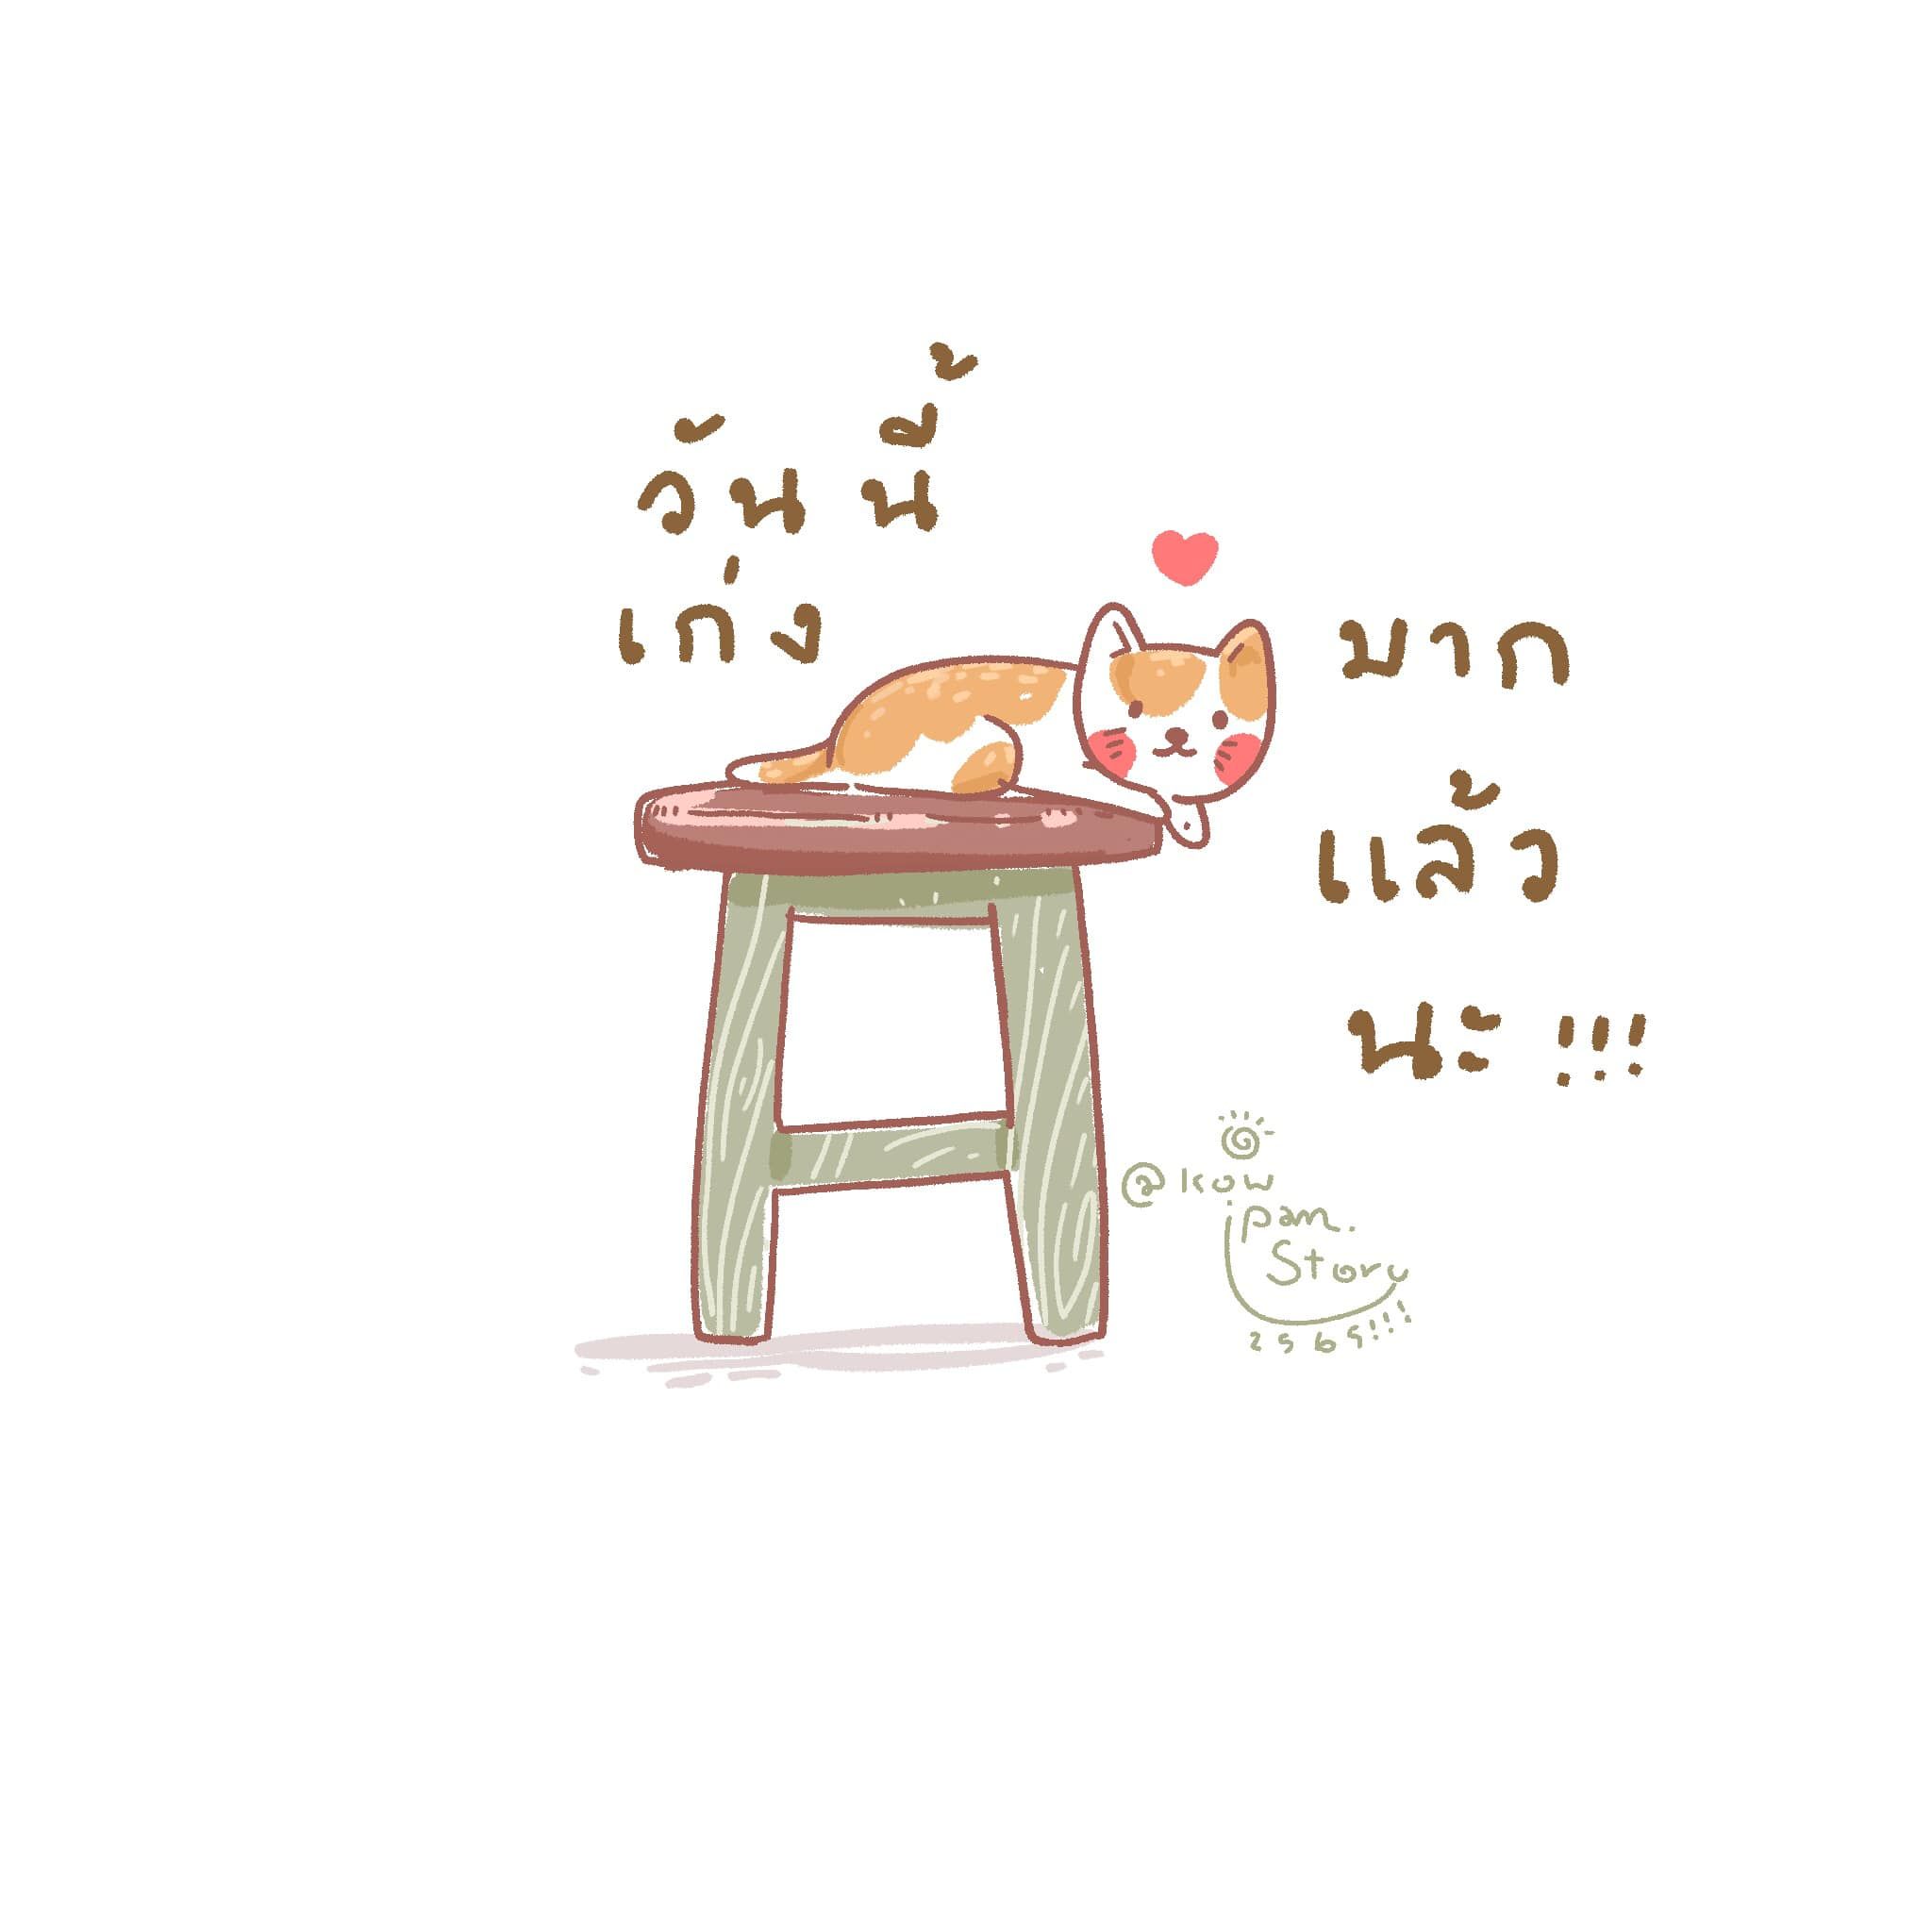 วันนี้
เก่ง
มาก
แล้ว
นะ !!!
@kow
pam.
Story
2565!!!